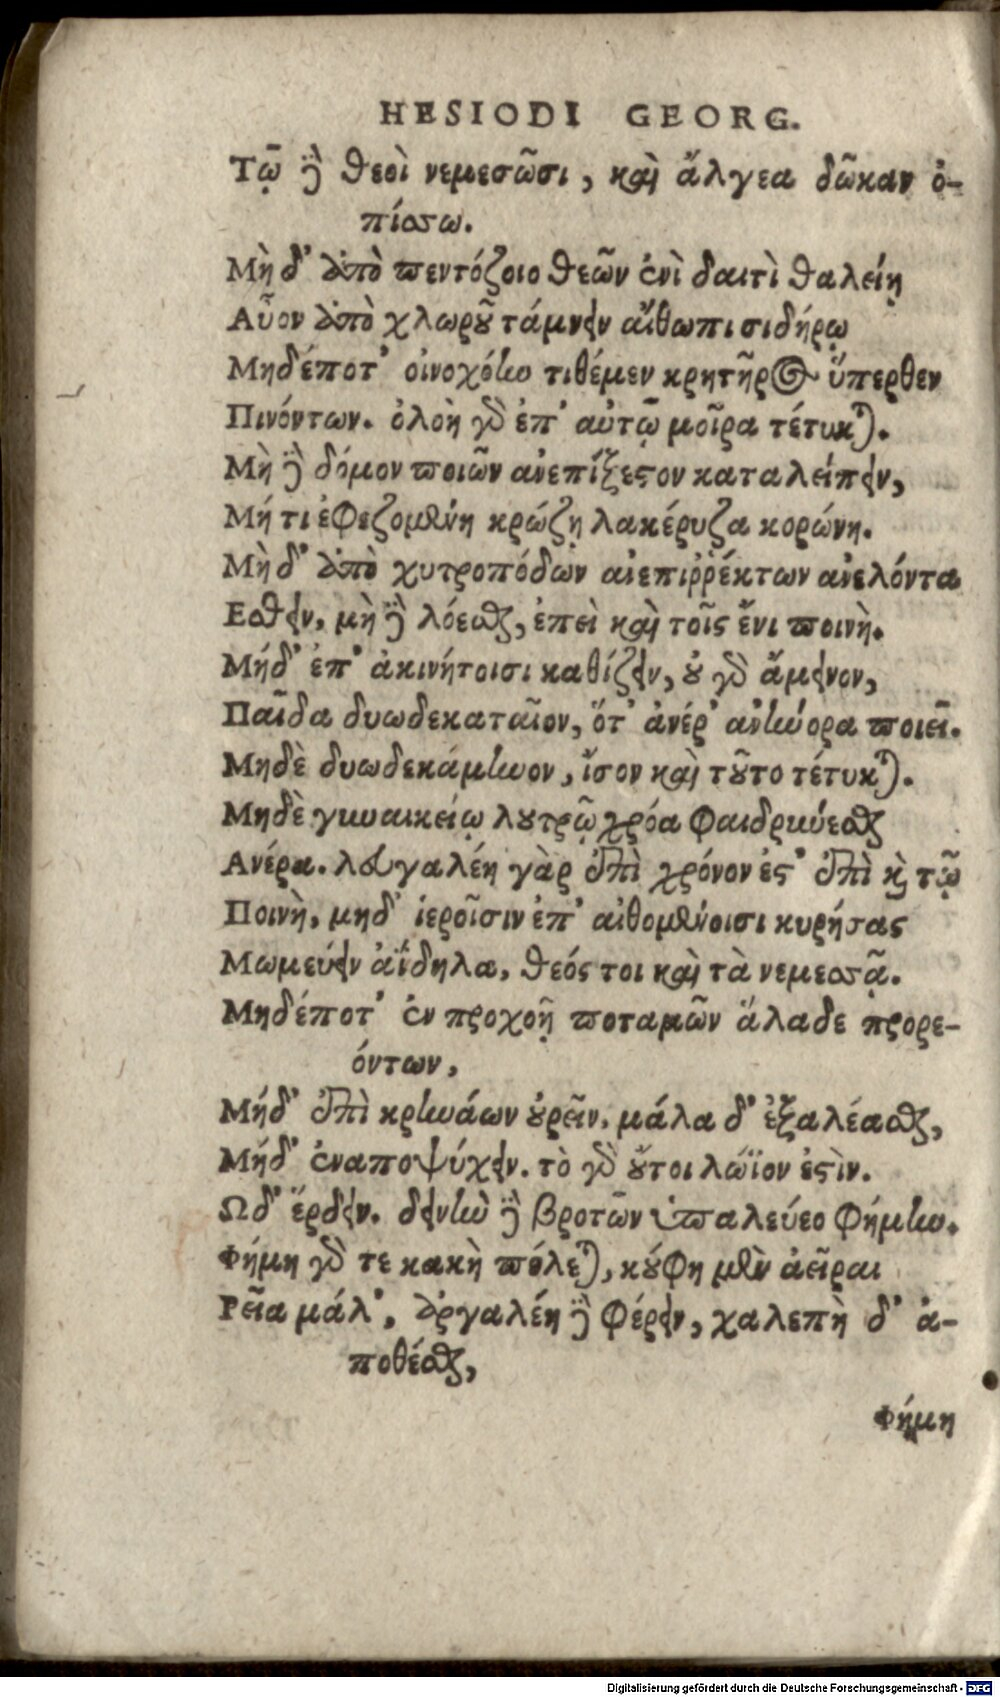 HESIODI GEORG.
Τῷ δὲ θεοὶ νεμεσῶσι, καὶ ἄλγεα δῶκαν ὀ-
πίσσω.
Μὴ δ' ἀπὸ πεντόζοιο θεῶν ἐνὶ δαιτὶ θαλείῃ
Αὖον ἀπὸ χλωροῦ τάμνειν αἴθωπι σιδήρῳ
Μηδέποτ' οἰνοχόην τιθέμεν κρητῆρος ὕπερθεν
Πινόντων. ὀλοὴ γὰρ ἐπ' αὐτῷ μοῖρα τέτυκται.
Μὴ δὲ δόμον ποιῶν ἀνεπίξεστον καταλείπειν,
Μή τι ἐφεζομένη κρώζῃ λακέρυζα κορώνη.
Μὴ δ' ἀπὸ χυτροπόδων ἀνεπιῤῥέκτων ἀνελόντα
Εσθειν, μὴ δὲ λόεσθαι, ἐπεὶ καὶ τοῖς ἔνι ποινὴ.
Μήδ' ἐπ' ἀκινήτοισι καθίζειν, οὐ γὰρ ἄμεινον,
Παῖδα δυωδεκαταῖον, ὅτ' ἀνέρ' ἀνήνορα ποιεῖ.
Μηδὲ δυωδεκάμηνον, ἴσον καὶ τοῦτο τέτυκται.
Μηδὲ γυναικείῳ λουτρῷ χρόα φαιδρύνεσθαι
Ανέρα. λευγαλέη γὰρ ἐπὶ χρόνον ἐστ' ἐπὶ καὶ τῷ
Ποινὴ, μηδ' ἱεροῖσιν ἐπ' αἰθομένοισι κυρήσας
Μωμεύειν ἀΐδηλα, θεός τοι καὶ τὰ νεμεσσᾷ.
Μηδέποτ' ἐν προχοῇ ποταμῶν ἅλαδε προρε-
όντων,
Μήδ' ἐπὶ κρηνάων οὐρεῖν, μάλα δ' ἐξαλέασθαι,
Μήδ' ἐναποψύχειν. τὸ γὰρ οὔτοι λώϊον ἐστὶν.
Ωδ' ἔρδειν. δεινὴν δὲ βροτῶν ὑπαλεύεο φήμην.
Φήμη γάρ τε κακὴ πέλεται, κούφη μὲν ἀεῖραι
Ρεῖα μάλ', ἀργαλέη δὲ φέρειν, χαλεπὴ δ' ἀ-
ποθέσθαι,
Φήμη
Digitalisierung gefördert durch die Deutsche Forschungsgemeinschaft - DFG